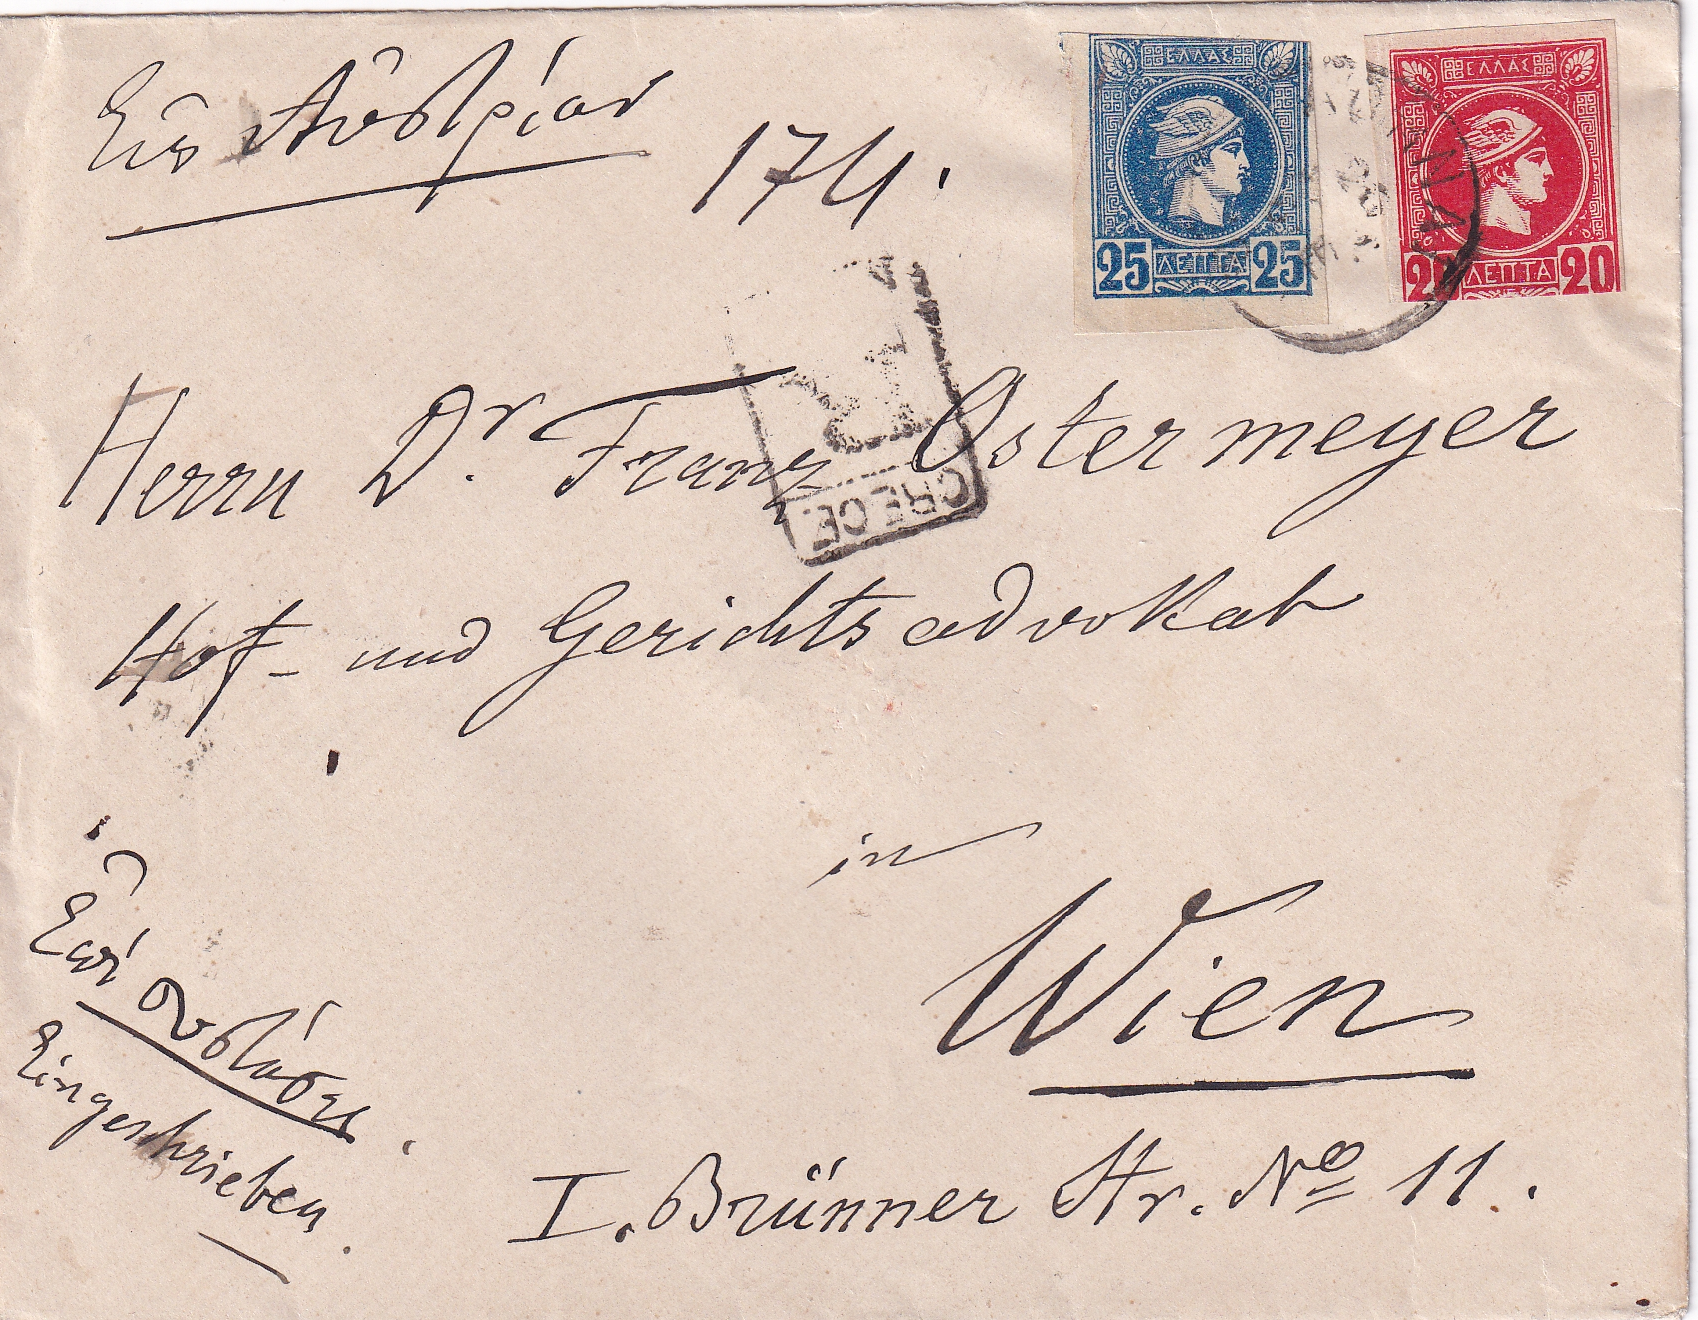 Εἰς Αὐστρίαν
174.
ΕΛΛΑΣ
25 ΛΕΠΤΑ 25
ΕΛΛΑΣ
20 ΛΕΠΤΑ 20
R
GRECE
Herrn Dr. Franz Ostermeyer
Hof- und Gerichtsadvokat
in
Wien
Ἐπὶ συστάσει
Eingeschrieben.
I. Brünner Str. No 11.